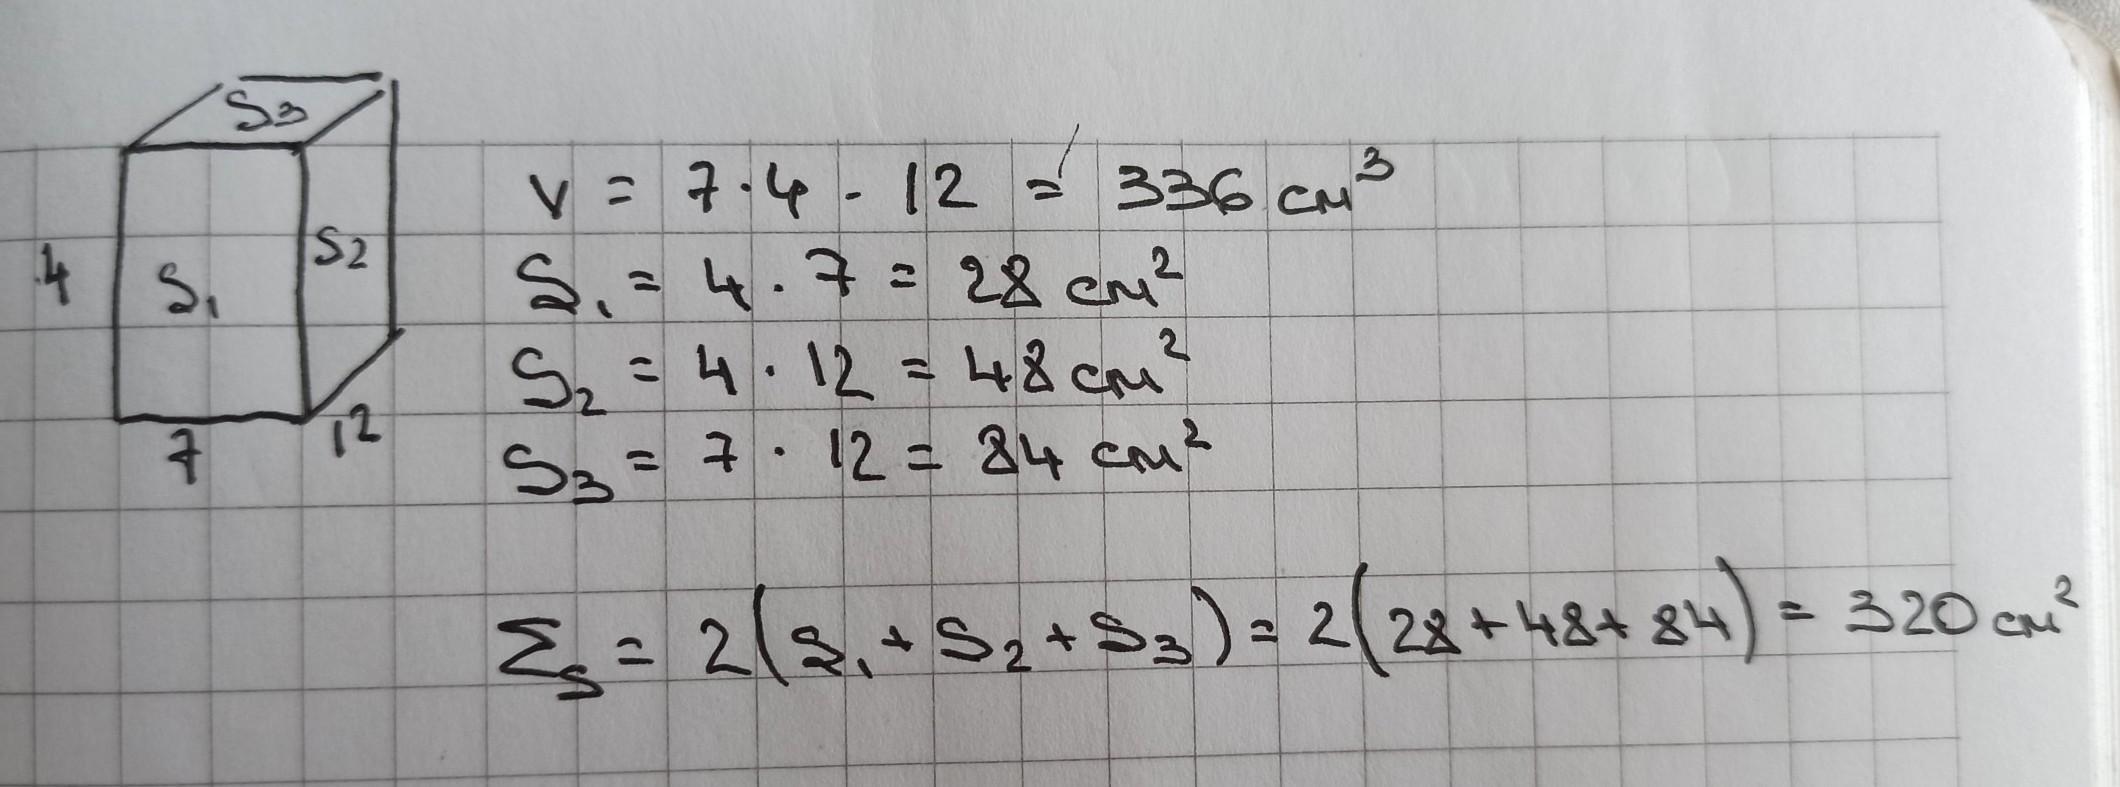 S₃
4 S₁ S₂
7 12
V = 7·4 · 12 = 336 см³
S₁ = 4 · 7 = 28 см²
S₂ = 4 · 12 = 48 см²
S₃ = 7 · 12 = 84 см²
Σs = 2(S₁ + S₂ + S₃) = 2(28 + 48 + 84) = 320 см²